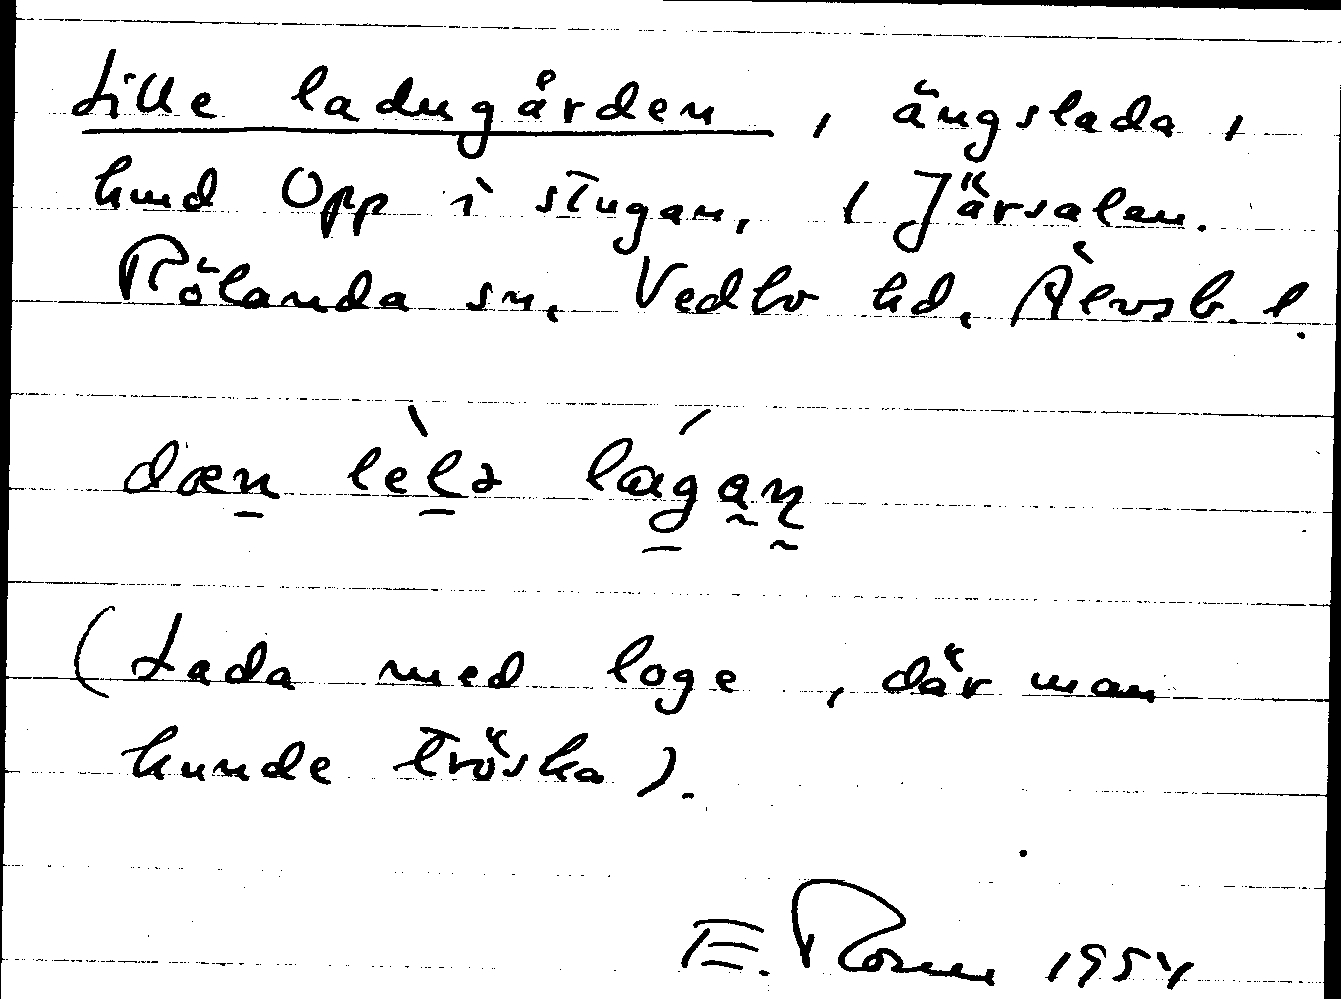 Lille ladugården, ängslada,
hmd Opp i stugan, (Järsalen.
Rölanda sn, Vedbo hd, Älvsb. l.
dæn lèlə lágan
(Lada med loge, där man
kunde tröska).
E. 1954